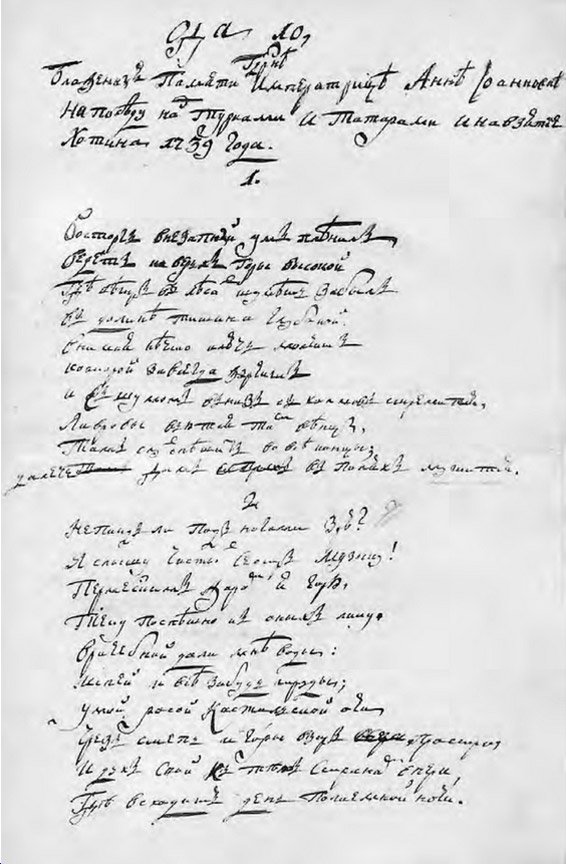 Ода 10,
блаженныя Памяти Гдрнѣ Императрицѣ Аннѣ Іоанновнѣ
на побѣду над Турками и Татарами и на взятіе
Хотина 1739 года.
1.
Восторгъ внезапный умъ плѣнилъ,
Ведетъ на верьхъ горы высокой
Гдѣ вѣтръ въ лѣсахъ шумѣть забылъ
въ долинѣ тишина глубокой.
внимая нѣчто ключь молчитъ
которой завсегда журчитъ
и съ шумомъ внизъ съ холмовъ стремится,
Лавровы вьются там вѣнцы,
Тамъ слухъ спѣшитъ во всѣ концы;
далече дымъ въ поляхъ курится.
2
Не Пиндъ ли подъ ногами зрю?
Я слышу чистыхъ сестръ музыку!
Пермесскимъ жаромъ я горю,
Теку поспѣшно къ оныхъ лику.
Врачебной дали мнѣ воды:
Испей и всѣ забудь труды;
умой росой Кастальской очи
Чрезъ степь и горы взоръ простри,
И духъ свой къ тѣмъ странамъ впери,
Гдѣ всходитъ день по темной ночи.